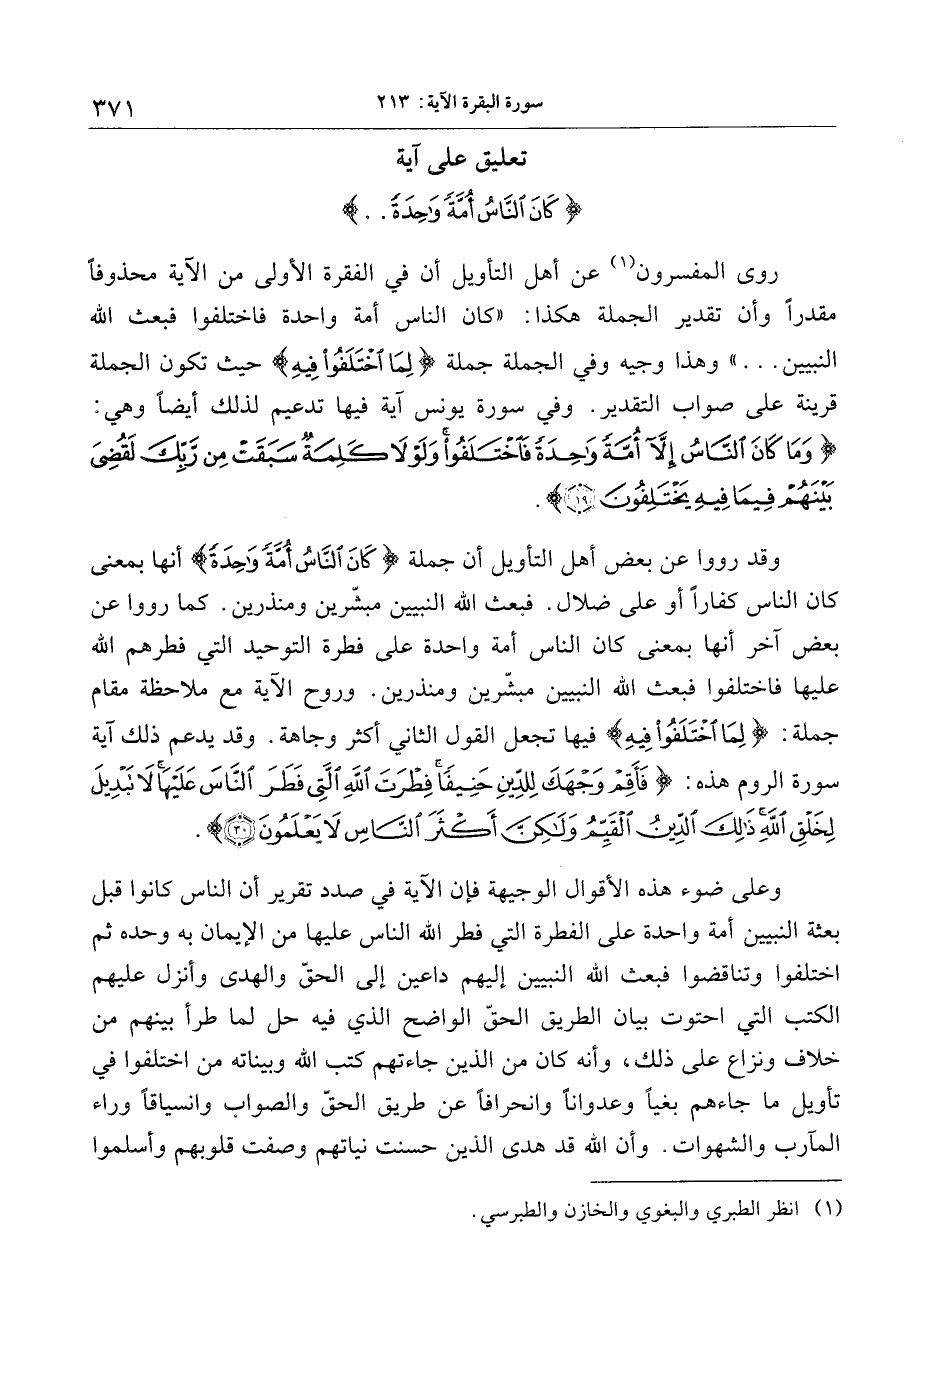 سورة البقرة الآية: ٢١٣
٣٧١
تعليق على آية
﴿ كَانَ ٱلنَّاسُ أُمَّةً وَٰحِدَةً . . ﴾
روى المفسرون(١) عن أهل التأويل أن في الفقرة الأولى من الآية محذوفاً
مقدراً وأن تقدير الجملة هكذا: «كان الناس أمة واحدة فاختلفوا فبعث الله
النبيين. . .» وهذا وجيه وفي الجملة جملة ﴿ لِمَا ٱخْتَلَفُوا۟ فِيهِ ﴾ حيث تكون الجملة
قرينة على صواب التقدير. وفي سورة يونس آية فيها تدعيم لذلك أيضاً وهي:
﴿ وَمَا كَانَ ٱلنَّاسُ إِلَّآ أُمَّةً وَٰحِدَةً فَٱخْتَلَفُوا۟ۚ وَلَوْلَا كَلِمَةٌ سَبَقَتْ مِن رَّبِّكَ لَقُضِىَ
بَيْنَهُمْ فِيمَا فِيهِ يَخْتَلِفُونَ ١٩ ﴾.
وقد رووا عن بعض أهل التأويل أن جملة ﴿ كَانَ ٱلنَّاسُ أُمَّةً وَٰحِدَةً ﴾ أنها بمعنى
كان الناس كفاراً أو على ضلال. فبعث الله النبيين مبشّرين ومنذرين. كما رووا عن
بعض آخر أنها بمعنى كان الناس أمة واحدة على فطرة التوحيد التي فطرهم الله
عليها فاختلفوا فبعث الله النبيين مبشّرين ومنذرين. وروح الآية مع ملاحظة مقام
جملة: ﴿ لِمَا ٱخْتَلَفُوا۟ فِيهِ ﴾ فيها تجعل القول الثاني أكثر وجاهة. وقد يدعم ذلك آية
سورة الروم هذه: ﴿ فَأَقِمْ وَجْهَكَ لِلدِّينِ حَنِيفًاۚ فِطْرَتَ ٱللَّهِ ٱلَّتِى فَطَرَ ٱلنَّاسَ عَلَيْهَاۚ لَا تَبْدِيلَ
لِخَلْقِ ٱللَّهِۚ ذَٰلِكَ ٱلدِّينُ ٱلْقَيِّمُ وَلَٰكِنَّ أَكْثَرَ ٱلنَّاسِ لَا يَعْلَمُونَ ٣٠ ﴾.
وعلى ضوء هذه الأقوال الوجيهة فإن الآية في صدد تقرير أن الناس كانوا قبل
بعثة النبيين أمة واحدة على الفطرة التي فطر الله الناس عليها من الإيمان به وحده ثم
اختلفوا وتناقضوا فبعث الله النبيين إليهم داعين إلى الحقّ والهدى وأنزل عليهم
الكتب التي احتوت بيان الطريق الحقّ الواضح الذي فيه حل لما طرأ بينهم من
خلاف ونزاع على ذلك، وأنه كان من الذين جاءتهم كتب الله وبيناته من اختلفوا في
تأويل ما جاءهم بغياً وعدواناً وانحرافاً عن طريق الحقّ والصواب وانسياقاً وراء
المآرب والشهوات. وأن الله قد هدى الذين حسنت نياتهم وصفت قلوبهم وأسلموا
(١) انظر الطبري والبغوي والخازن والطبرسي.